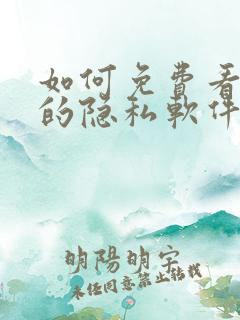 如何免费看
的隐私軟件
明陽明宇
未经同意禁止转载